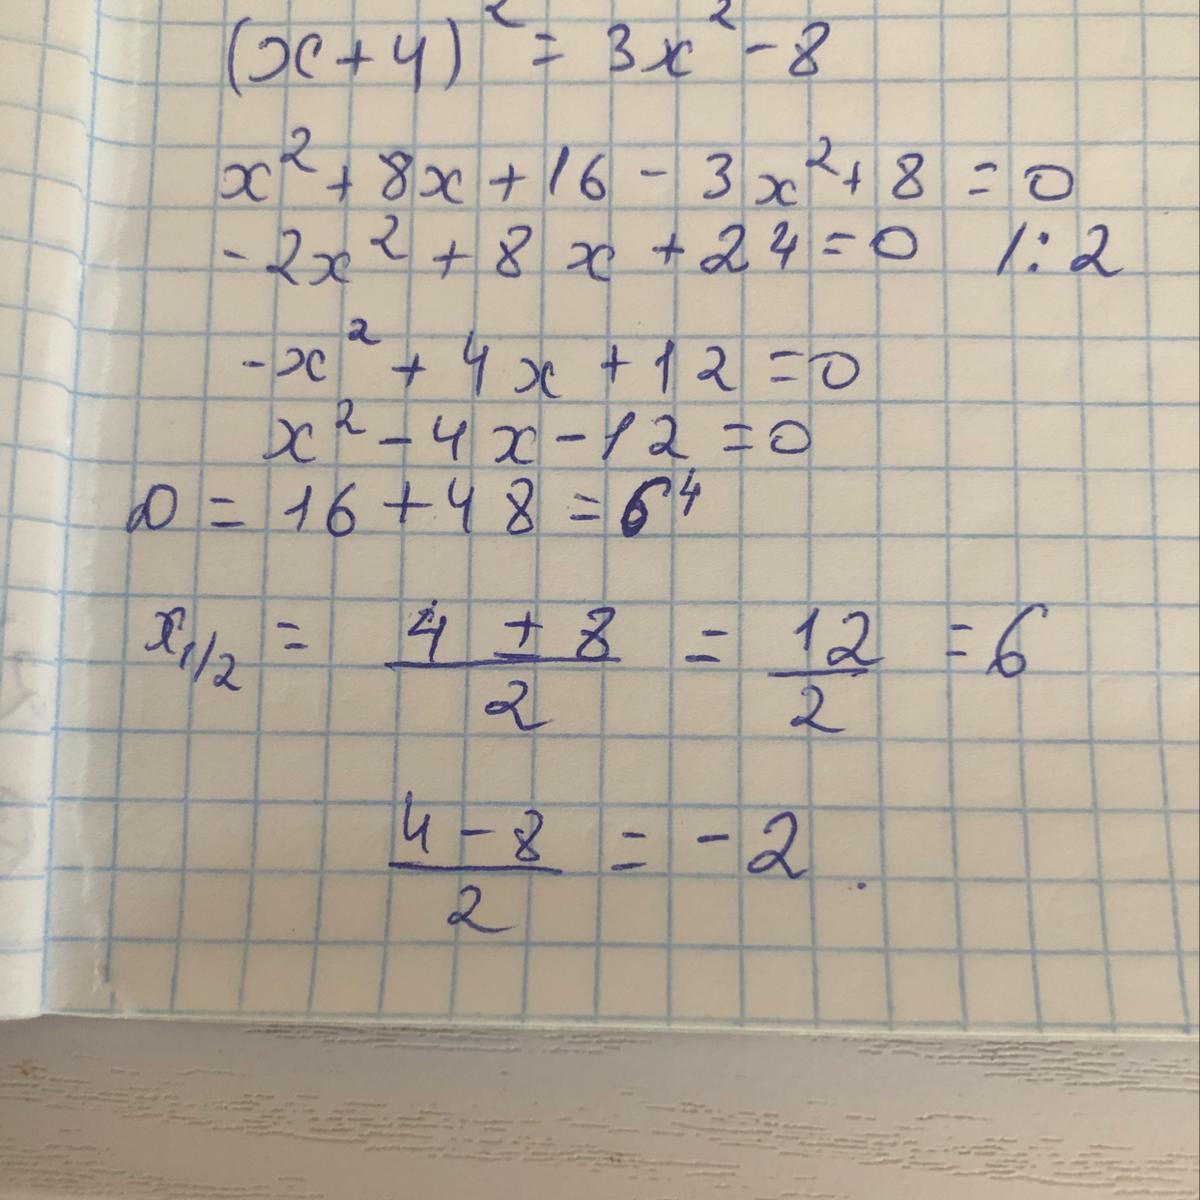 (x+4)² = 3x² - 8
x² + 8x + 16 - 3x² + 8 = 0
-2x² + 8x + 24 = 0 /: 2
-x² + 4x + 12 = 0
x² - 4x - 12 = 0
D = 16 + 48 = 64
x₁/₂ = (4 ± 8)/2 = 12/2 = 6
(4 - 8)/2 = -2.